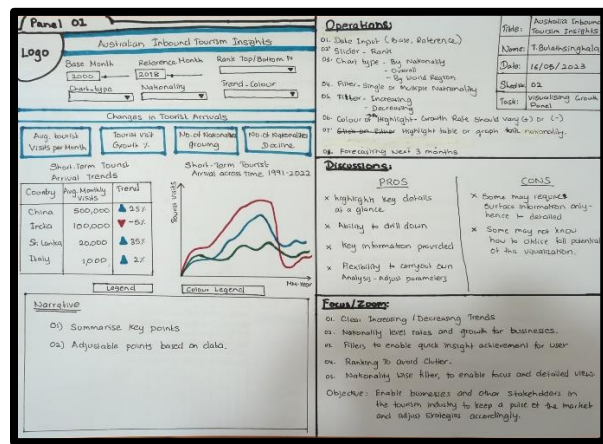 Panel 01
Logo
Australian Inbound Tourism Insights
Base Month
Reference Month
Rank Top/Bottom
2000
2018
Chart-type
Nationality
Trend-Colour
Changes in Tourist Arrivals
Avg. tourist
Visits per Month
Tourist visit
Growth %
No. of Nationalities
growing
No. of Nationalities
Decline
Short-Term Tourist
Arrival Trends
Country
Avg. Monthly
Visits
Trend
China 500,000 ▲ 25%
India 100,000 ▼ -5%
Sri Lanka 20,000 ▲ 35%
Italy 1,000 ▲ 2%
Legend
Short-Term Tourist
Arrival across time 1991-2022
Tourist Visits
MM-Year
Colour Legend
Narrative
01) Summarise key points
02) Adjustable points based on data.
Operations:
01. Date Input (Base, Reference)
02. Slider - Rank
03. Chart type - By Nationality
- Overall
- By World Region
04. Filter - Single or Multiple Nationality
05. Filter - Increasing
- Decreasing
06. Colour of Highlight - Growth Rate should vary (+) or (-)
07. Highlight table or graph nationality.
08. Forecasting next 3 months
Title: Australia Inbound
Tourism Insights
Name: T. Bulathsinghala
Date: 16/05/2023
Sheet: 02
Task: Visualising Growth
Panel
Discussions:
PROS
x highlights key details
at a glance
x Ability to drill down
x Key information provided
x Flexibility to carryout own
Analysis - Adjust parameters
CONS
x Some may require
Surface information only -
hence to detailed
x Some may not know
how to utilise full potential
of the visualization.
Focus/Zoom:
01. Clear Increasing / Decreasing Trends
02. Nationality level rates and growth for businesses.
03. Filters to enable quick insight achievement for user
04. Ranking to avoid Clutter.
05. Nationality wise filter, to enable focus and detailed view
Objective: Enable businesses and other stakeholders in
the tourism industry to keep a pulse of the market
and adjust strategies accordingly.